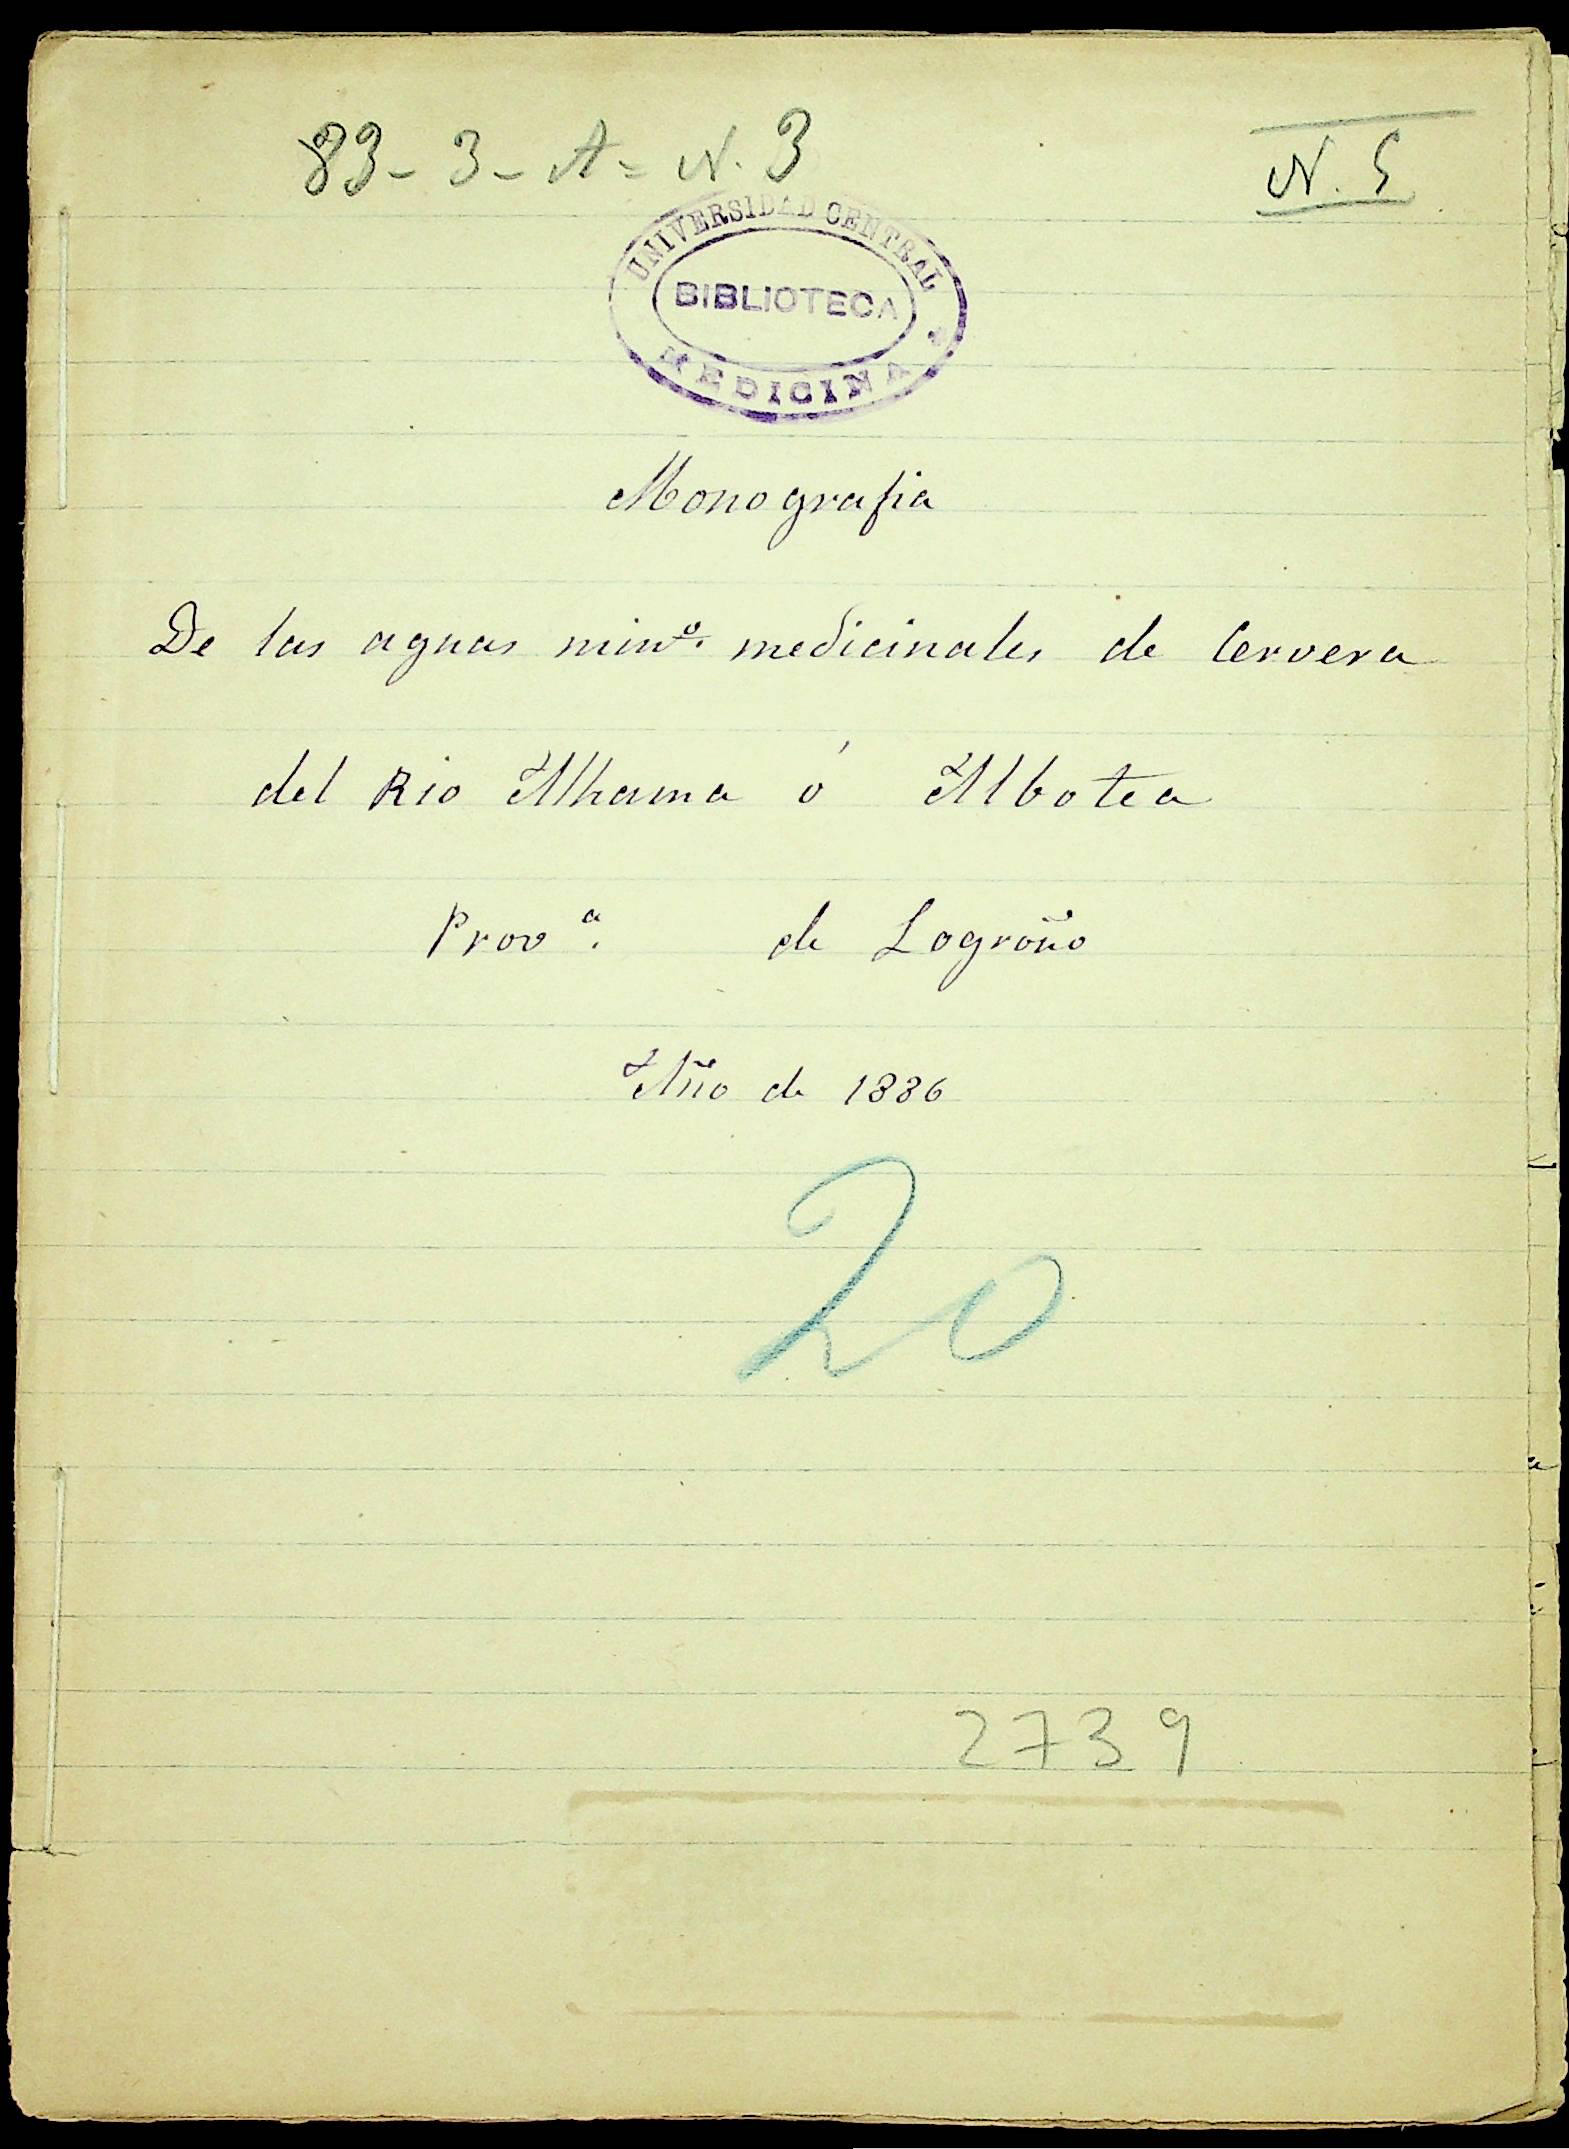 83-3-A= N. 3
N. 5
UNIVERSIDAD CENTRAL
BIBLIOTECA
MEDICINA
Monografia
De las aguas minº. medicinales de Cervera
del Rio Alhama ó Albotea
Provª. de Logroño
Año de 1886
20
2739